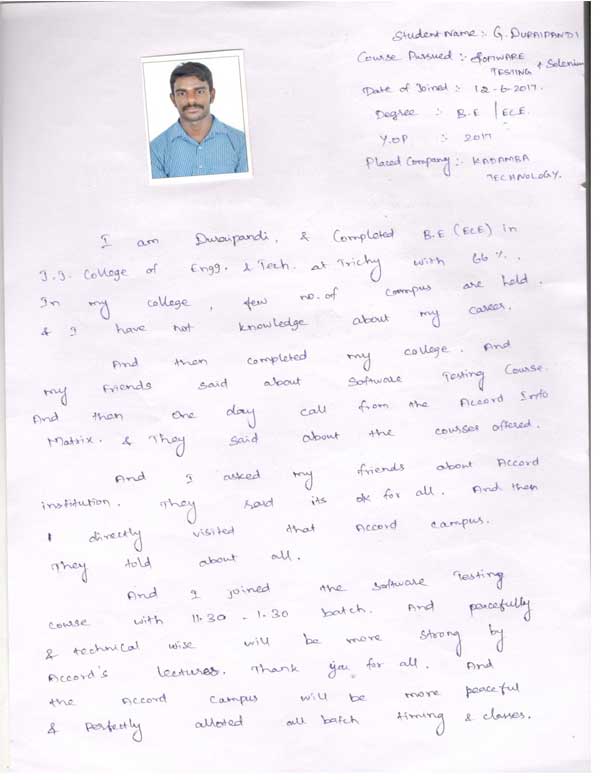 Student Name :- G. DURAIPANDI
Course Pursued :- SOFTWARE
TESTING & Selenium
Date of Joined :- 12-6-2017.
Degree :- B.E / ECE.
Y.OP :- 2017
Placed Company :- KADAMBA
TECHNOLOGY.
I am Duraipandi, & Completed B.E (ECE) in
J.J. College of Engg. & Tech. at Trichy with 66%.
In my college, few no. of campus are held.
& I have not knowledge about my career.
And then completed my college. And
my Friends said about Software Testing Course.
And then one day call from the Accord Info
Matrix. & They said about the courses offered.
And I asked my friends about Accord
institution. They said its ok for all. And then
I directly visited that Accord campus.
They told about all.
And I joined the software Testing
course with 11.30 - 1.30 batch. And peacefully
& technical wise will be more strong by
Accord's lectures. Thank you for all. And
the Accord campus will be more peaceful
& perfectly alloted all batch timing & classes.